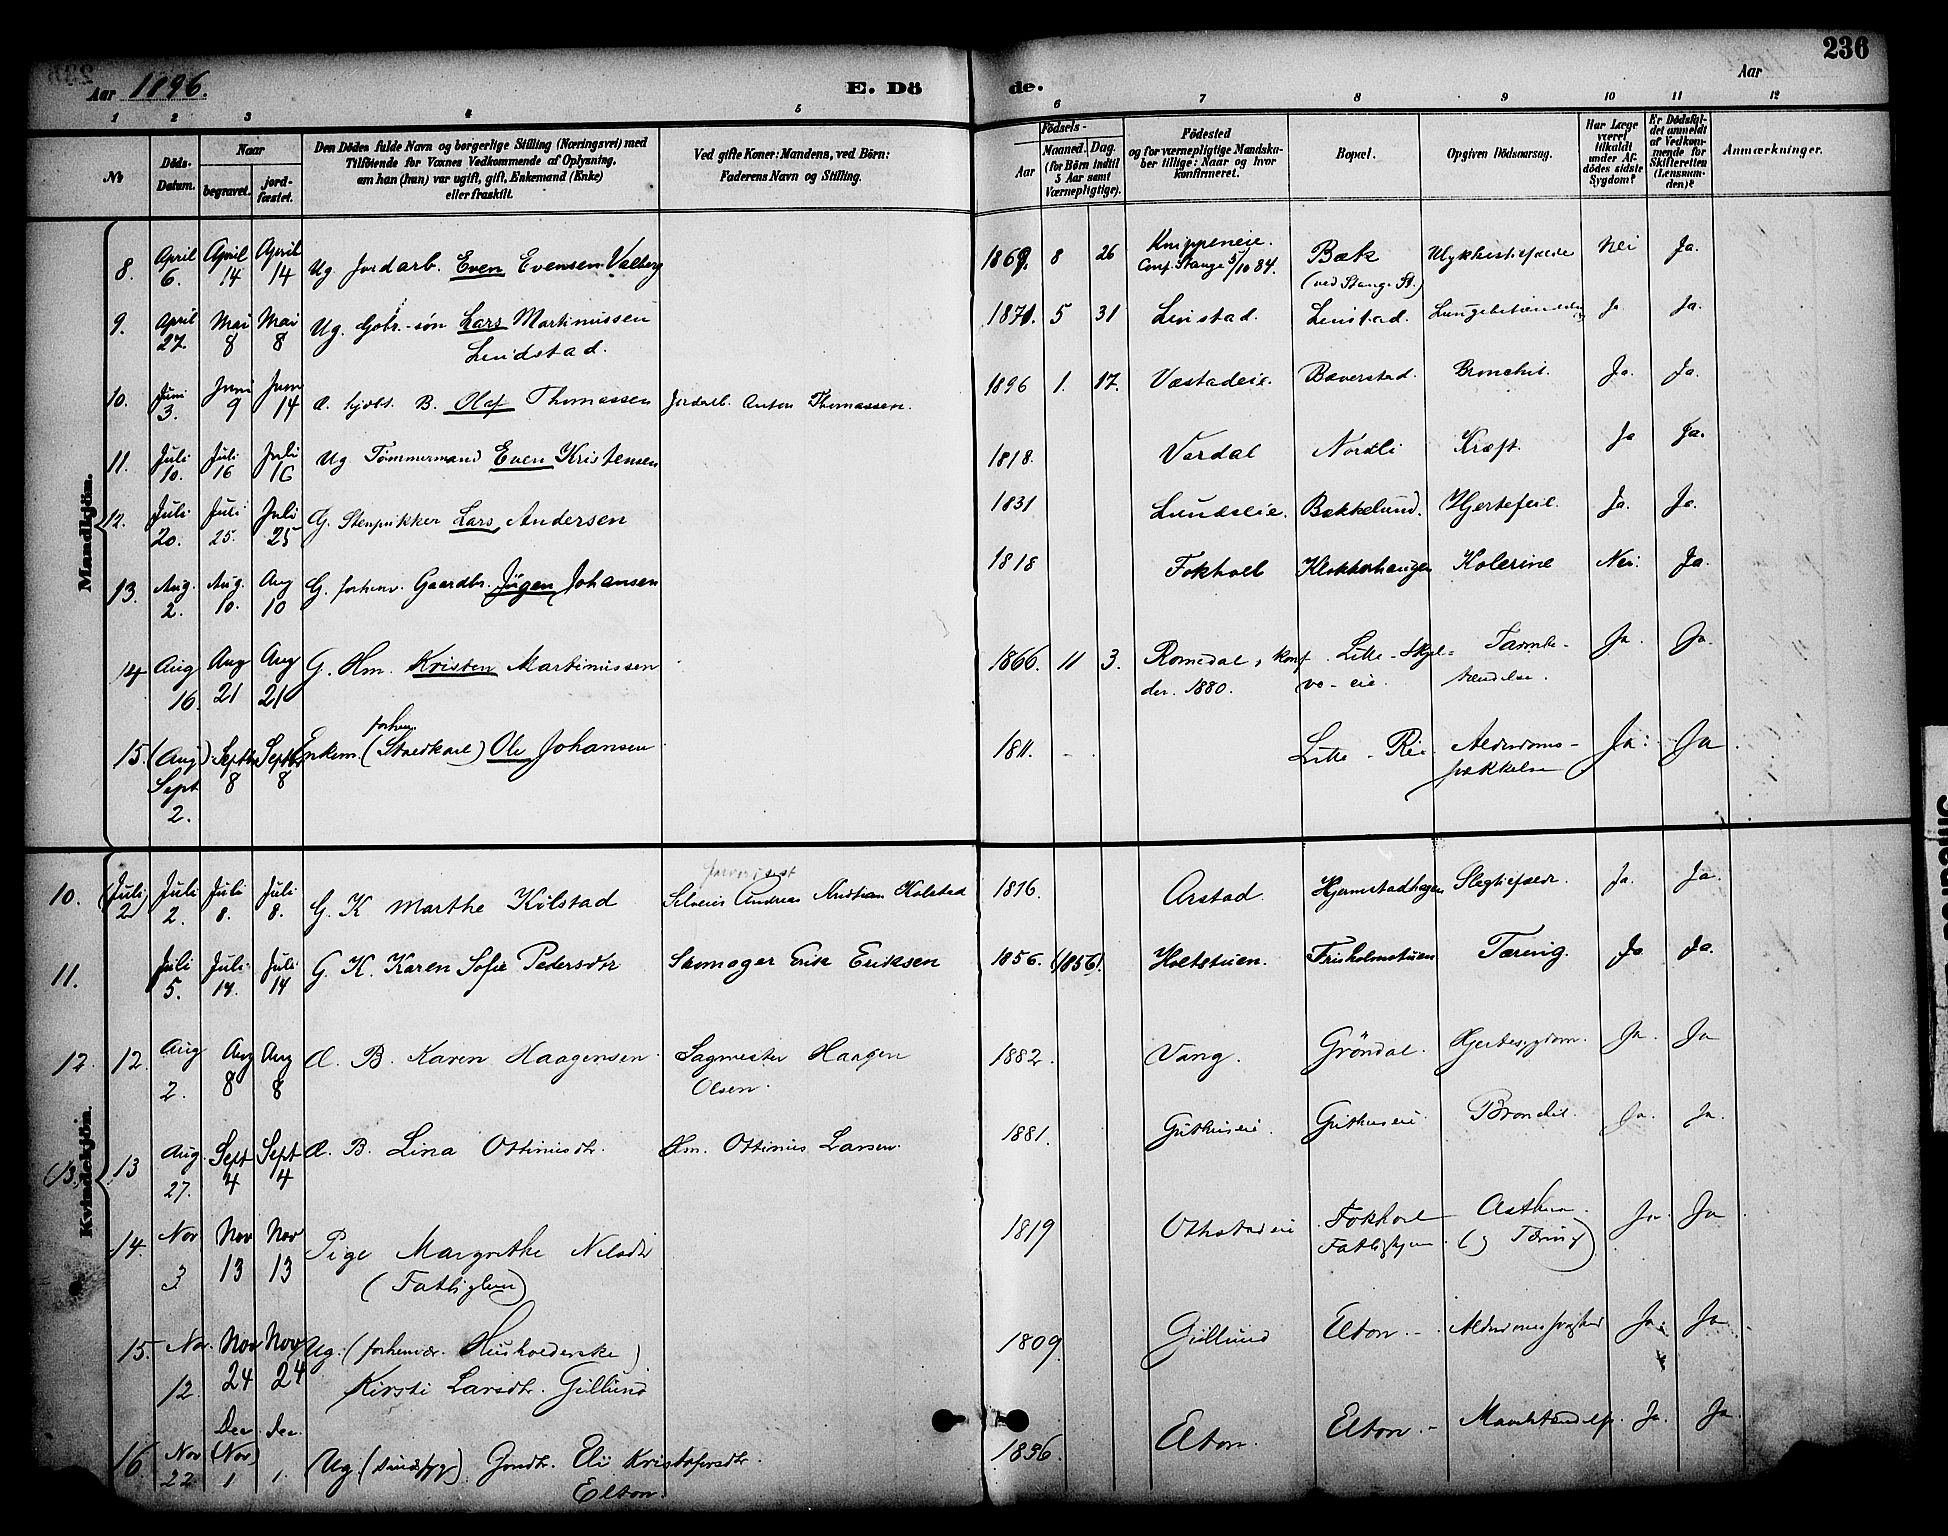 236
Aar 1896.
E. Dö de.
Aar
1 2 3 4 5 6 7 8 9 10 11 12
No
Döds-Datum.
Naar
begravet.
jordfæstet.
Den Dödes fulde Navn og borgerlige Stilling (Næringsvei) med
Tilföiende for Voxnes Vedkommende af Oplysning,
om han (hun) var ugift, gift, Enkemand (Enke)
eller fraskilt.
Ved gifte Koner: Mandens, ved Börn:
Faderens Navn og Stilling.
Födsels-
Aar
Maaned. Dag.
(for Börn indtil
5 Aar samt
Værnepligtige).
Födested
og for værnepligtige Mandskaber tillige: Naar og hvor
konfirmeret.
Bopæl.
Opgiven Dödsaarsag.
Har Læge
været
tilkaldt
under Afdödes sidste
Sygdom?
Er Dödsfaldet anmeldt
af Vedkommende for
Skifteretten
(Lensmanden)?
Anmærkninger.
Mandkjön.
8. April 6. April 14 April 14 Ug Jordarb. Even Evensen Valberg 1869. 8 26 Knippeneie. Conf. Stange 5/10 84. Bæk (ved Stange St.) Ulykkestilfælde Nei Ja.
9. April 27. Mai 8 Mai 8 Ug. Gbr.-søn Lars Martinussen Lindstad. 1871. 5 31 Linstad. Linstad. Lungebetændelse Ja Ja.
10. Juni 3. Juni 9 Juni 14 B. Olaf Thomassen Jordarb. Anton Thomassen. 1896 1. 17. Væstadeie. Bæverstad. Bronchit. Ja. Ja.
11. Juli 10. Juli 16 Juli 16 Ug Tömmermand Even Kristensen 1818. Vardal Nordli Kræft. Ja Ja.
12. Juli 20. Juli 25. Juli 25 G. Stenpikker Lars Andersen 1831 Lundseie. Bækkelund. Hjertefeil. Ja. Ja.
13. Aug. 2. Aug. 10. Aug 10 G. forhenv. Gaardbr. Jörgen Johansen 1818 Fokhoel Klokkerhaugen Kolerine Nei. Ja.
14 Aug 16. Aug 21 Aug 21 G. Hm. Kristen Martinussen 1866. 11 3. Romedal, konf der. 1880. Lille-Skjelve-eie. Tarmbetændelse. Ja. Ja.
15. (Aug) Sept 2. Septbr 8 Septbr 8 Enkem. forhen. Ole Johansen 1811. Lille-Rie Alderdomssvækkelse Ja. Ja.
Kvindekjön.
10. (Juli 2) Juli 2. Juli 8. Juli 8. G. K Marthe Kolstad Selveier Andreas Kristian Kolstad 1816. Arstad. Hjermstadhagen Slagtilfælde. Ja. Ja.
11. Juli 5. Juli 14. Juli 14 G. K. Karen Sofie Pedersdtr Skomager Erik Eriksen 1856. (1856). Holtstuen. Frisholmstuen Tæring. Ja Ja.
12. 12. Aug 2. Aug 8 Aug 8 B. Karen Haagensen Sagmester Haagen Olsen. 1882. Vang. Gröndal. Hjertesygdom. Ja. Ja
(13.) 13 Aug 27. Sept 4 Sept 4 B. Lina Ottinusdtr. Hm. Ottinius Larsen. 1881. Guthuseie. Guthuseie. Bronchit. Ja. Ja.
14. Nov 3 Nov 13 Nov 13 Pige Margrethe Nilsdtr (Fattiglem) 1819 Othstadeie Fokhoel Fattighjem Asthma. (og Tæring) Ja. Ja
15. Nov. 12. Nov 24 Nov 24 Ug. (forhenvær. Husholderske) Kirsti Larsdtr. Gillund 1809. Gillund Elton. Ja. Ja
16. Nov 22. Dec (Nov) 1 Dec. 1. Ug Eli Kristofersdtr. Elton. 1836. Elton. Elton. Ja. Ja.